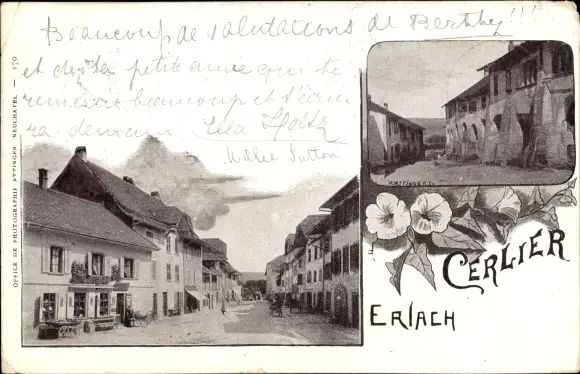 Beaucoup de salutations de Berthe, !!!
et de la petite amie qui te
remercie beaucoup et t'écri
ra demain.
OFFICE DE PHOTOGRAPHIE ATTINGER NEUCHATEL — 170
CERLIER
ERLACH